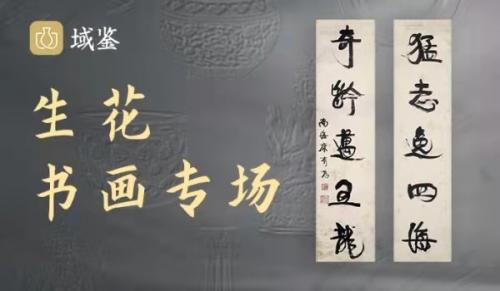 域鉴
生花
书画专场
猛志逸四海
奇齡邁五龍
南海康有为